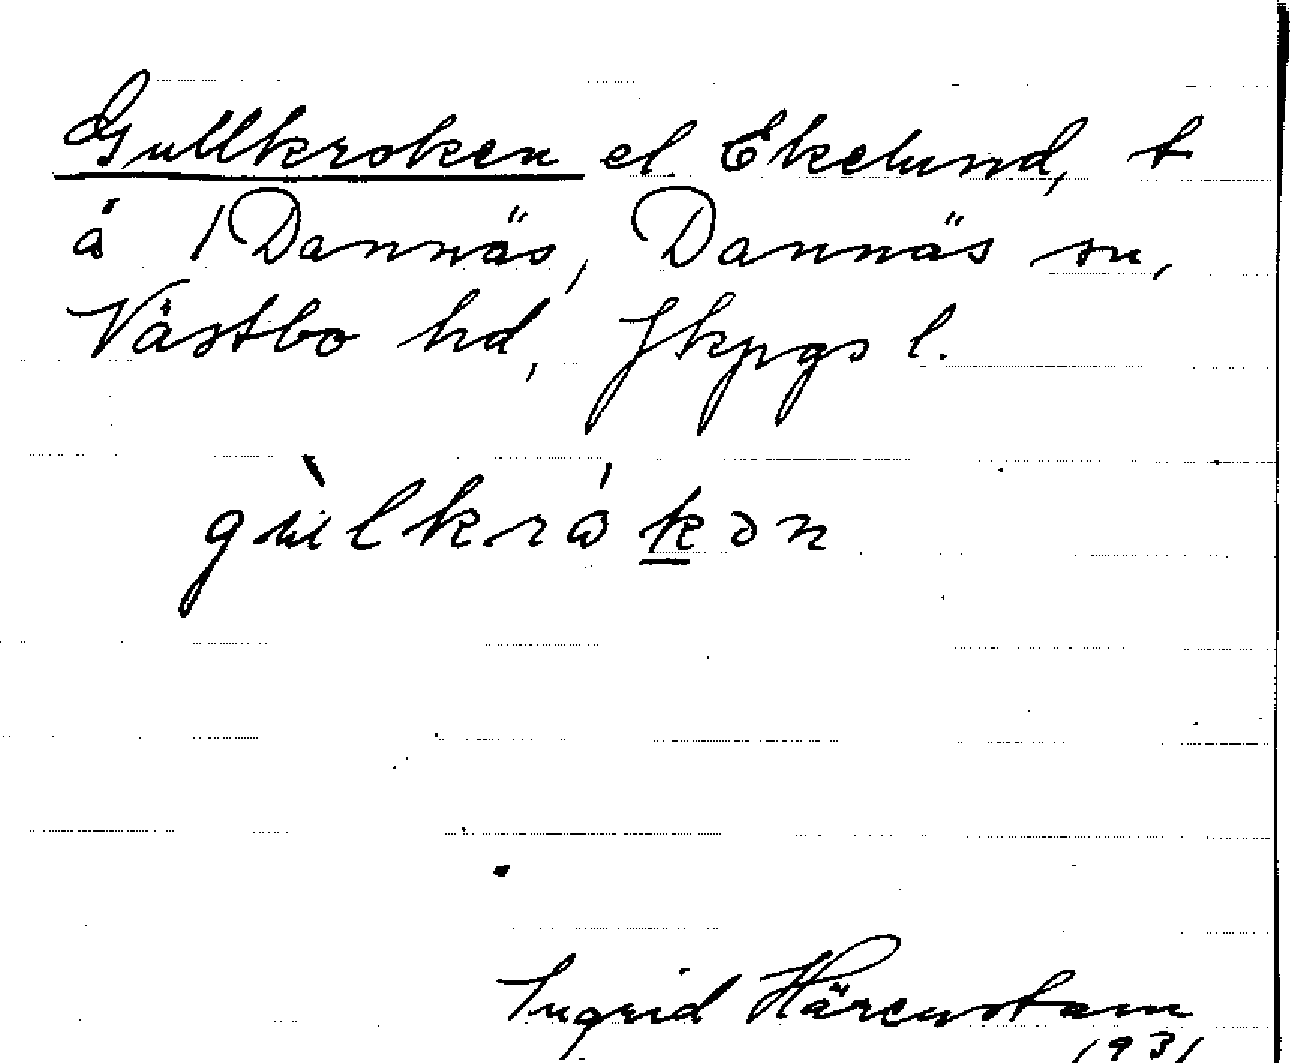 Gullkroken el Ekelund, t
å 1 Dannäs, Dannäs sn,
Västbo hd, Jkpgs l.
gùlkrǻkən
Ingrid Härenstam
1931